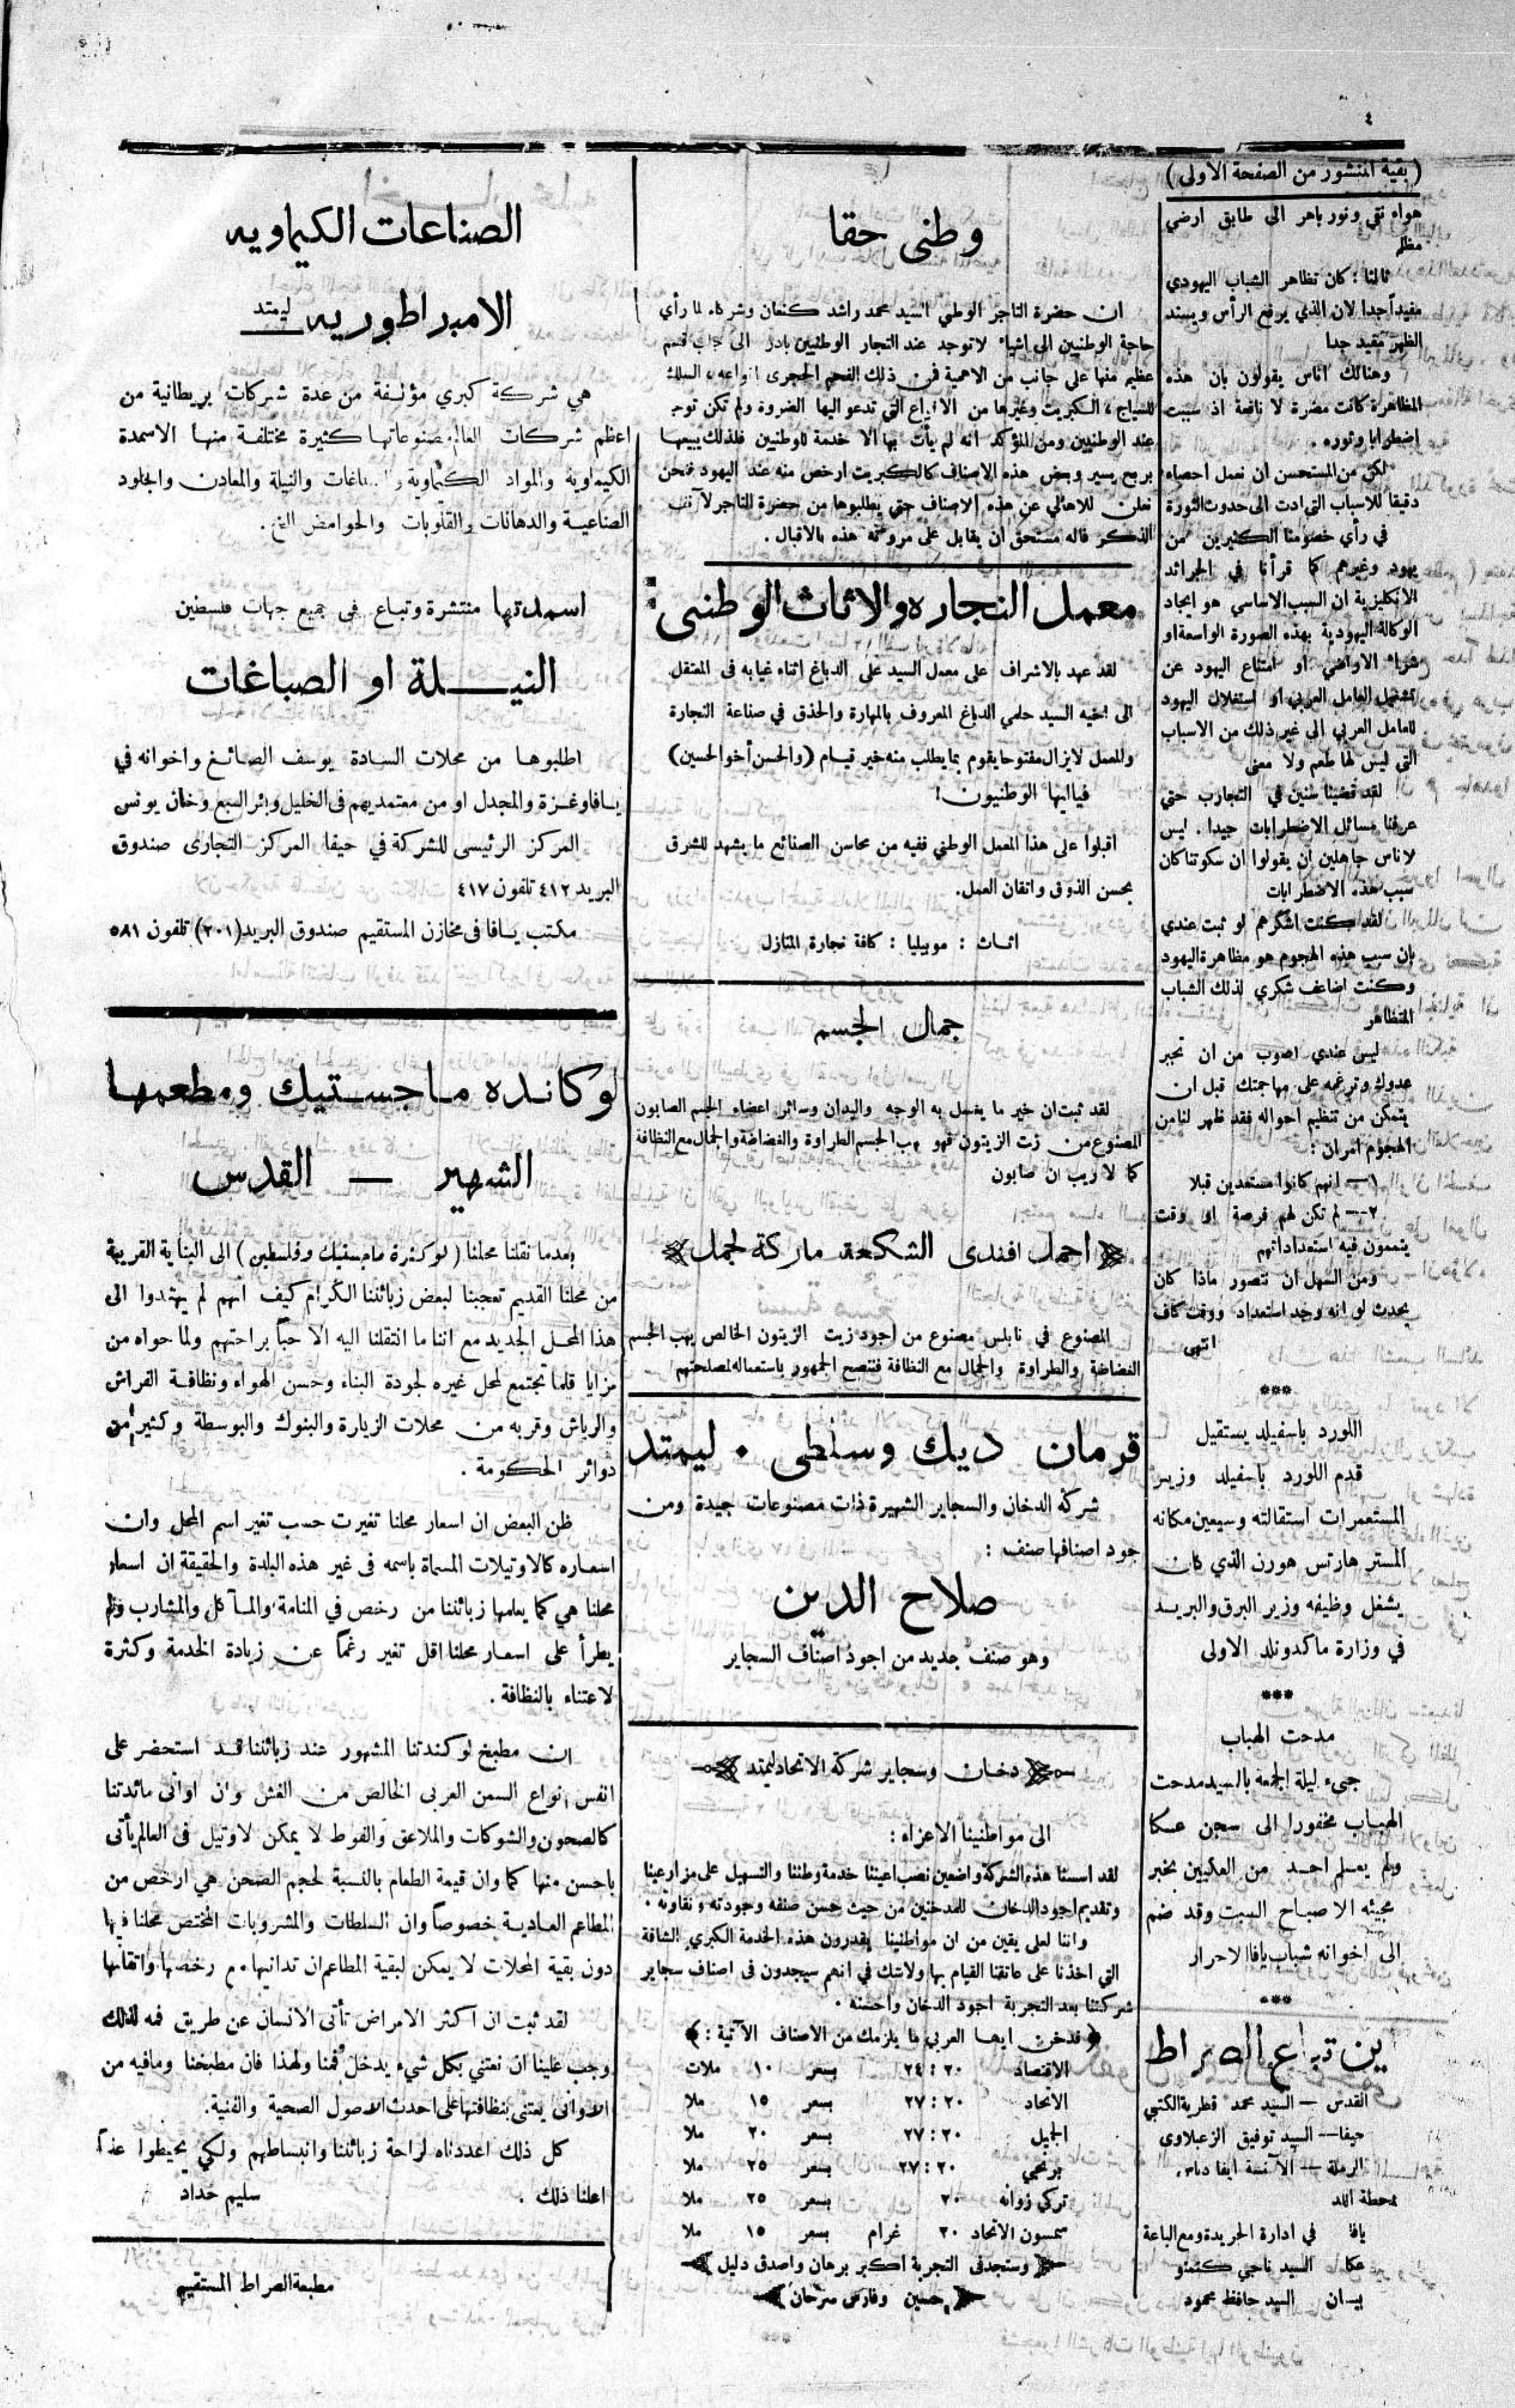 ٤
(بقية المنشور من الصفحة الاولى)
هواء نقي ونور باهر الى طابق ارضي
مظلم
ثالثا : كان تظاهر الشباب اليهودي
مفيداً جدا لان الذي يرفع الرأس ويسند
الظهر مفيد جدا
وهنالك اناس يقولون بان هذه
المظاهرة كانت مضرة لا نافعة اذ سببت
اضطرابا وثوره .
لكن من المستحسن ان نعمل احصاء
دقيقا للاسباب التي ادت الى حدوث الثورة
في رأي خصومنا الكثيرين من
يهود وغيرهم كما قرأنا في الجرائد
الانكليزية ان السبب الاساسي هو ايجاد
الوكالة اليهودية بهذه الصورة الواسعة او
شراء الاراضي او امتناع اليهود عن
تشغيل العامل العربي او استغلال اليهود
للعامل العربي الى غير ذلك من الاسباب
التي ليس لها طعم ولا معنى
لقد قضينا سنين في التجارب حتى
عرفنا مسائل الاضطرابات جيدا . ليس
لاناس جاهلين ان يقولوا ان سكوتنا كان
سبب هذه الاضطرابات
لقد كنت اشكرهم لو ثبت عندي
بان سبب هذه الهجوم هو مظاهرة اليهود
وكنت اضاعف شكري لذلك الشباب
المتظاهر
ليس عندي اصوب من ان تجبر
عدوك وترغمه على مهاجمتك قبل ان
يتمكن من تنظيم احواله فقد ظهر لنا من
الهجوم امران :
١— انهم كانوا مستعدين قبلا
٢— لم تكن لهم فرصة او وقت
يتممون فيه استعداداتهم
ومن السهل ان نتصور ماذا كان
يحدث لو انه وجد استعداد ووقت كاف
انتهى
***
اللورد باسفيلد يستقيل
قدم اللورد باسفيلد وزير
المستعمرات استقالته وسيعين مكانه
المستر هارتس هورن الذي كان
يشغل وظيفه وزير البرق والبريد
في وزارة ماكدونلد الاولى
***
مدحت الهباب
جيء ليلة الجمعة بالسيد مدحت
الهباب مخفورا الى سجن عكا
ولم يعلم احد من العكيين بخبر
مجيئه الا صباح السبت وقد ضم
الى اخوانه شباب يافا الاحرار
***
ين تباع الصراط
القدس — السيد محمد قطرية الكتبي
حيفا — السيد توفيق الزعبلاوى
الرملة — الآنسة ايفا
محطة اللد
يافا في ادارة الجريدة ومع الباعة
عكا السيد ناجي كتمتو
بيسان السيد حافظ محمود
وطني حقا
ان حضرة التاجر الوطني السيد محمد راشد كنعان وشركاه لما رأي
حاجة الوطنيين الى اشياء لا توجد عند التجار الوطنيين بادر الى جلب قسم
عظيم منها على جانب من الاهمية فمن ذلك الفحم الحجرى انواعه ، السلك
للسياج ، الكبريت وغيرها من الانواع التي تدعو اليها الضروة ولم تكن توجد
عند الوطنيين ومن المؤكد انه لم يأت بها الا خدمة للوطنيين فلذلك يبيعها
بربح يسير وبعض هذه الاصناف كالكبريت ارخص منه عند اليهود فنحن
نعلن للاهالي عن هذه الاصناف حتى يطلبوها من حضرة التاجر الآنف
الذكر فانه مستحق ان يقابل على مروءته هذه بالاقبال .
معمل النجاره والاثاث الوطني :
لقد عهد بالاشراف على معمل السيد على الدباغ اثناء غيابه في المعتقل
الى اخيه السيد حلمي الدباغ المعروف بالمهارة والحذق في صناعة النجارة
والمعمل لايزال مفتوحا يقوم بما يطلب منه خير قيام (والحسن أخو الحسين)
فياايها الوطنيون !
اقبلوا على هذا المعمل الوطني ففيه من محاسن الصنائع ما يشهد للشرق
بحسن الذوق واتقان العمل.
اثاث : موبيليا : كافة نجارة المنازل
جمال الجسم
لقد ثبت ان خير ما يغسل به الوجه واليدان وسائر اعضاء الجسم الصابون
المصنوع من زت الزيتون فهو يهب الجسم الطراوة والغضاضة والجمال مع النظافة
كما لا ريب ان صابون
احمد افندى الشكعه ماركة الجمل
المصنوع في نابلس مصنوع من اجود زيت الزيتون الخالص يهب الجسم
الغضاضة والطراوة والجمال مع النظافة فننصح الجمهور باستعماله لمصلحتهم
قرمان ديك وسلطي . ليمتد
شركة الدخان والسجاير الشهيرة ذات مصنوعات جيدة ومن
جود اصنافها صنف :
صلاح الدين
وهو صنف جديد من اجود اصناف السجاير
دخان وسجاير شركة الاتحاد ليمتد
الى مواطنينا الاعزاء :
لقد اسسنا هذه الشركة واضعين نصب اعيننا خدمة وطننا والتسهيل على مزارعينا
وتقديم اجود الدخان للمدخنين من حيث حسن صنفه وجودته ونقاوته .
واننا لعلى يقين من ان مواطنينا يقدرون هذه الخدمة الكبري الشاقة
التي اخذنا على عاتقنا القيام بها ولا شك في انهم سيجدون في اصناف سجاير
شركتنا بعد التجربة اجود الدخان واحسنه .
(فدخن ايها العربي ما يلزمك من الاصناف الآتية :)
الاقتصاد ٢٠ : ٢٤ بسعر ١٠ ملات
الاتحاد ٢٠ : ٢٧ بسعر ١٥ ملا
الجميل ٢٠ : ٢٧ بسعر ٢٠ ملا
برنجي ٢٠ : ٢٧ بسعر ٢٥ ملا
تركي زوانه ٢٠ بسعر ٢٥ ملا
سمسون الاتحاد ٢٠ غرام بسعر ١٥ ملا
وستجد في التجربة اكبر برهان واصدق دليل
حسين وفارس سرحان
الصناعات الكيماويه
الامبراطوريه ليمتد
هي شركة كبري مؤلفة من عدة شركات بريطانية من
اعظم شركات العالم مصنوعاتها كثيرة مختلفة منها الاسمدة
الكيماوية والمواد الكيماوية والصباغات والنيلة والمعادن والجلود
الصناعية والدهانات والقلويات والحوامض الخ .
اسمدتها منتشرة وتباع في جميع جهات فلسطين
النيلة او الصباغات
اطلبوها من محلات السادة يوسف الصائغ واخوانه في
يافا وغزة والمجدل او من معتمديهم في الخليل وبئر السبع وخان يونس
المركز الرئيسى للشركة في حيفا المركز التجارى صندوق
البريد ٤١٢ تلفون ٤١٧
مكتب يافا في مخازن المستقيم صندوق البريد (٢٠١) تلفون ٥٨١
لوكانده ماجستيك ومطعمها
الشهير — القدس
بعدما نقلنا محلنا (لوكندة ماجستيك وفلسطين) الى البناية القريبة
من محلنا القديم تعجبنا لبعض زبائننا الكرام كيف انهم لم يهتدوا الى
هذا المحل الجديد مع اننا ما انتقلنا اليه الا حباً براحتهم ولما حواه من
مزايا قلما تجتمع لمحل غيره لجودة البناء وحسن الهواء ونظافة الفراش
والرياش وقربه من محلات الزيارة والبنوك والبوسطة وكثير من
دوائر الحكومة .
ظن البعض ان اسعار محلنا تغيرت حسب تغير اسم المحل وان
اسعاره كالاوتيلات المسماة باسمه في غير هذه البلدة والحقيقة ان اسعار
محلنا هي كما يعلمها زبائننا من رخص في المنامة والمآكل والمشارب ولم
يطرأ على اسعار محلنا اقل تغير رغماً عن زيادة الخدمة وكثرة
لاعتناء بالنظافة .
ان مطبخ لوكندتنا المشهور عند زبائننا قد استحضر على
انفس انواع السمن العربى الخالص من الغش وان اوانى مائدتنا
كالصحون والشوكات والملاعق والفوط لا يمكن لاوتيل في العالم يأتى
باحسن منها كما وان قيمة الطعام بالنسبة لحجم الصحن هي ارخص من
المطاعم العادية خصوصاً وان السلطات والمشروبات المختص محلنا فيها
دون بقية المحلات لا يمكن لبقية المطاعم ان تدانيها مع رخصها واتقانها
لقد ثبت ان اكثر الامراض تأتى الانسان عن طريق فمه لذلك
وجب علينا ان نعتني بكل شيء يدخل فمنا ولهذا فان مطبخنا ومافيه من
الاوانى يعتنى بنظافتها على احدث الاصول الصحية والفنية.
كل ذلك اعددناه لراحة زبائننا وانبساطهم ولكي يحيطوا علماً
اعلنا ذلك . سليم حداد
مطبعة الصراط المستقيم